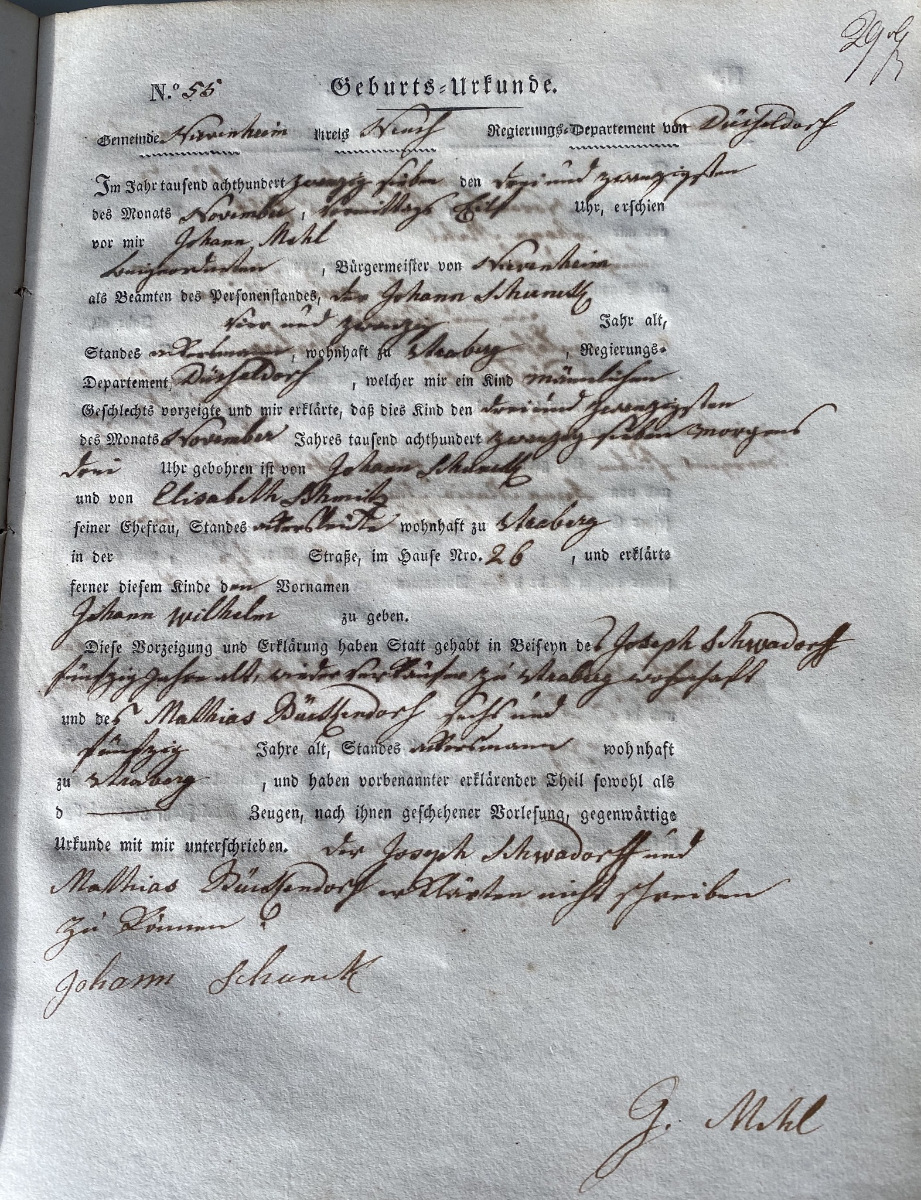 29
N.º 55 Geburts-Urkunde.
Gemeinde Nievenheim Kreis Neuss Regierungs-Departement von Düsseldorf
Im Jahr tausend achthundert zwanzig sieben den drei und zwanzigsten
des Monats November, Vormittags Eilf Uhr, erschien
vor mir Johann Mehl
beigeordneten, Bürgermeister von Nievenheim
als Beamten des Personenstandes, der Johann Schunck
vier und zwanzig Jahr alt,
Standes ackersmann, wohnhaft zu Straberg, Regierungs-
Departement Düsseldorf, welcher mir ein Kind männlichen
Geschlechts vorzeigte und mir erklärte, daß dies Kind den drei und zwanzigsten
des Monats November Jahres tausend achthundert zwanzig sieben morgens
drei Uhr gebohren ist von Johann Schunck
und von Elisabeth Schmitz
seiner Ehefrau, Standes ackersleute wohnhaft zu Straberg
in der Straße, im Hause Nro. 26, und erklärte
ferner diesem Kinde den Vornamen
Johann Wilhelm zu geben.
Diese Vorzeigung und Erklärung haben Statt gehabt in Beiseyn des Joseph Schwadorff
fünfzig Jahre alt, wiederverkäufer zu Straberg wohnhaft
und des Mathias sechs und
fünfzig Jahre alt, Standes ackersmann wohnhaft
zu Straberg, und haben vorbenannter erklärender Theil sowohl als
d Zeugen, nach ihnen geschehener Vorlesung, gegenwärtige
Urkunde mit mir unterschrieben. Der Joseph Schwadorff und
Mathias erklärten nicht schreiben
zu können
Johann Schunck
G. Mehl